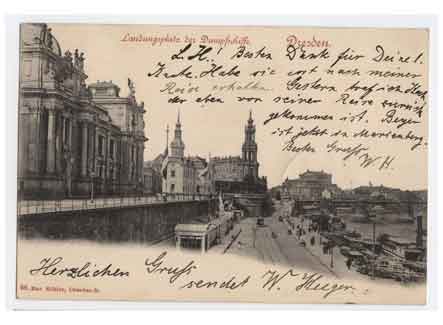 Landungsplatz der Dampfschiffe. Dresden.
L. H! Besten Dank für Deine 1.
Karte. Habe sie erst nach meiner
Reise erhalten. Gestern traf ich
der eben von seiner Reise zurück
gekommen ist. Beyer
ist jetzt in Marienberg.
Besten Gruss
W. H.
Herzlichen Gruss
sendet W.
Max Köhler, Dresden